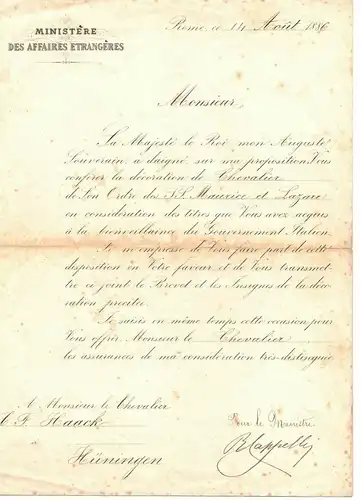 MINISTÈRE
DES AFFAIRES ETRANGÈRES
Rome ce 14 Août 1886
Monsieur,
Sa Majesté le Roi mon Auguste
Souverain a daigné sur ma proposition, Vous
conférer la décoration de Chevalier
de Son Ordre des S.S. Maurice et Lazare
en considération des titres que Vous avez acquis
à la bienveillance du Gouvernement Italien.
Je m'empresse de Vous faire part de cette
disposition en Votre faveur et de Vous transmet-
tre ci joint le Brevet et les Insignes de la déco-
ration précitée.
Je saisis en même temps cette occasion pour
Vous offrir Monsieur le Chevalier
les assurances de ma considération très-distinguée
A Monsieur le Chevalier
C. F. Haack
Hüningen
Pour le Ministre
RCappelli